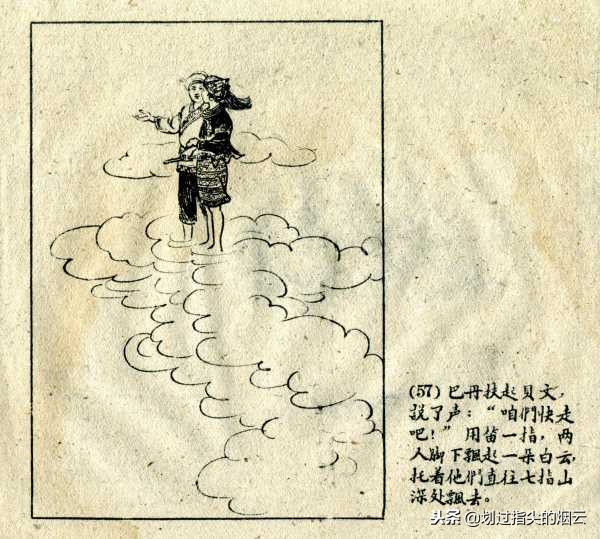 (57) 巴丹扶起貝文，
説了声：“咱們快走
吧！”用笛一指，两
人脚下飘起一朵白云，
托着他們直往七指山
深处飘去。
头条 @划过指头的烟云